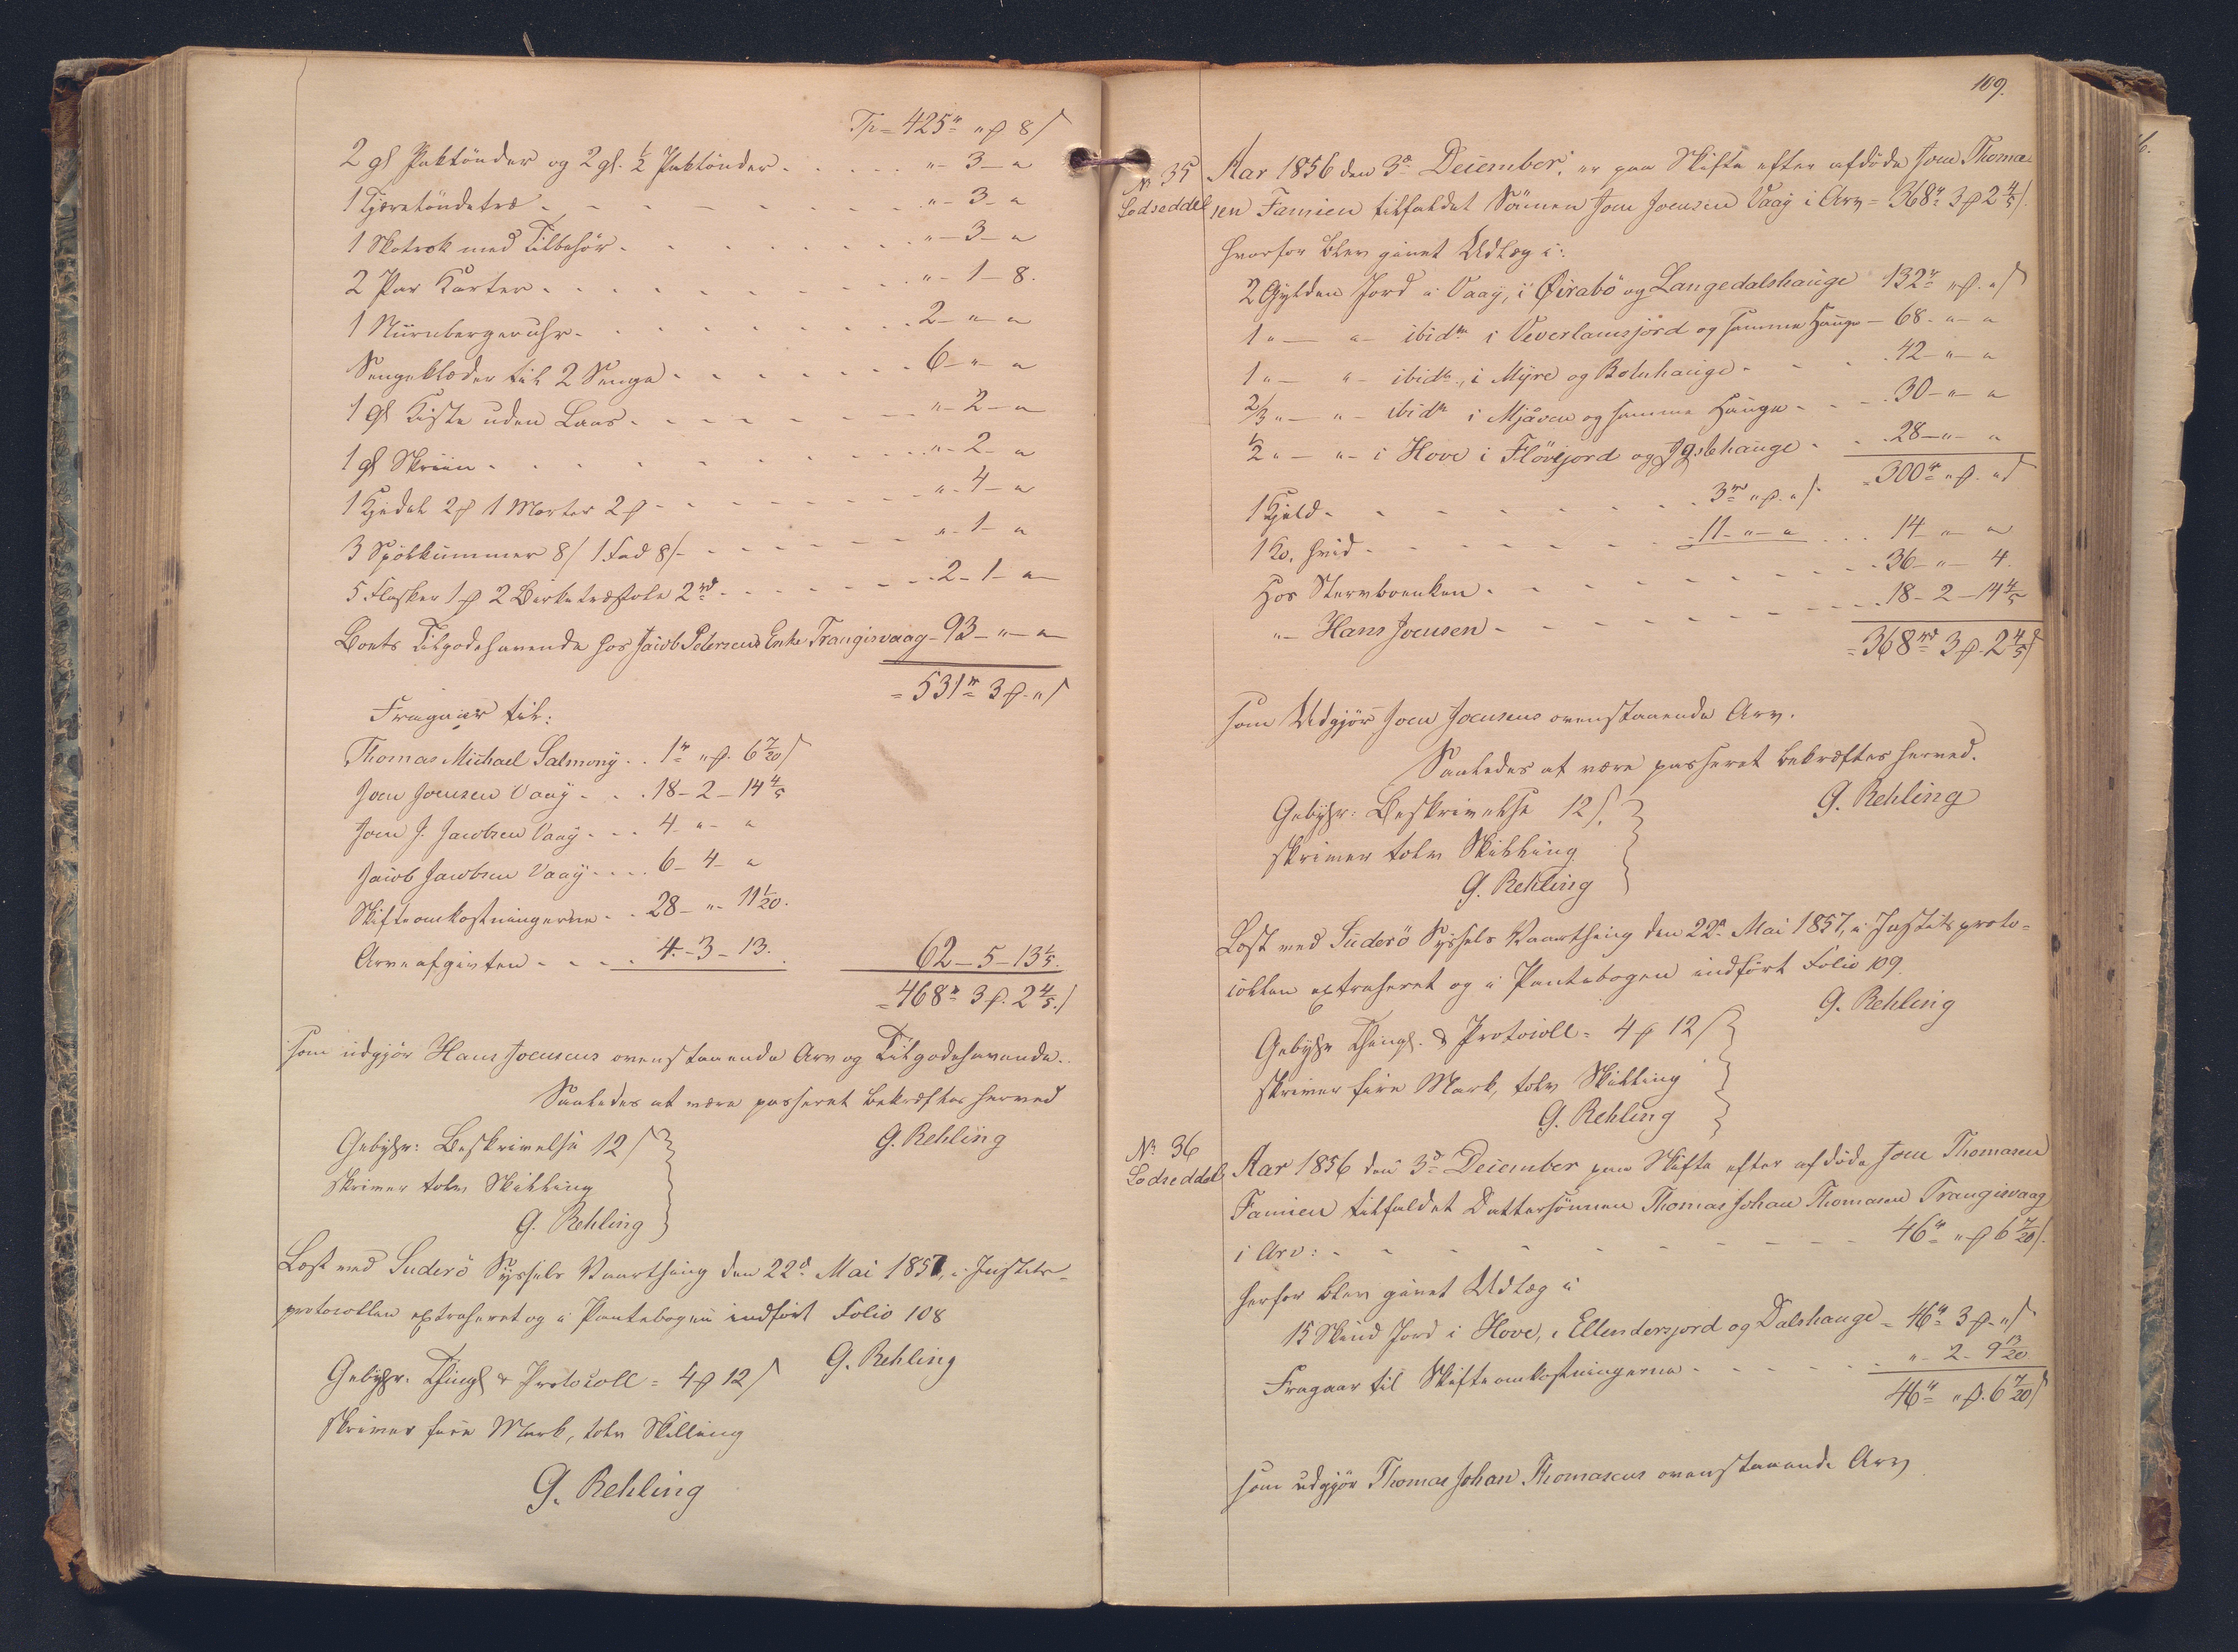 Tp = 425rd " ₰ 8 ſ
2 gl Paktønder og 2 gl. ½ Paktønder . . . . . " - 3 - "
1 Tjæretøndetræ . . . . . " - 3 - "
1 Skotrok med Tilbehør . . . . . " - 3 - "
2 Par Karter . . . . . " - 1 - 8.
1 Nürnbergeruhr . . . . . 2 - " - "
Sengeklæder til 2 Senge . . . . . 6 - " - "
1 gl Kiste uden Laas . . . . . " - 2 - "
1 gl Skriin . . . . . " - 2 - "
1 Kjedel 2 ₰ 1 Morter 2 ₰ . . . . . " - 4 - "
3 Spølkummer 8 ſ 1 Fad 8 ſ . . . . . " - 1 - "
5 Flasker 1 ₰ 2 Birketræstole 2rd . . . . . 2 - 1 - "
Boets Tilgodehavende hos Jacob Petersens Enke Trangisvaag - 93 - " - "
= 531rd 3 ₰ " ſ
Fragaaer til:
Thomas Michael Salmony . . 1rd " ₰ 6 7/20 ſ
Joen Joensen Vaag . . . 18 - 2 - 14 4/5
Joen J. Jacobsen Vaag . . . 4 - " - "
Jacob Jacobsen Vaag . . . . 6 - 4 - "
Skifteomkostningerne . . 28 - " - 11 1/20.
Arveafgivten . . . . 4 - 3 - 13. 62 - 5 - 13 1/5.
= 468rd 3 ₰ 2 4/5 ſ
som udgjør Hans Joensens ovenstaaende Arv og Tilgodehavende.
Saaledes at være passeret bekræftes herved
Gebyhr: Beskrivelse 12 ſ G. Rehling
skriver tolv Skilling
G. Rehling
Læst ved Suderö Syssels Vaarthing den 22d Mai 1857, i Justits-
protocollen extraheret og i Pantebogen indført Folio 108
G. Rehling
Gebyhr. Thingl & Protocoll = 4 ₰ 12 ſ
skriver fire Mark, tolv Skilling
G. Rehling
109.
No 35 Aar 1856 den 3d December, er paa Skifte efter afdøde Joen Thoma-
Lodseddel sen Famien tilfaldet Sønnen Joen Joensen Vaag i Arv = 368rd 3 ₰ 2 4/5 ſ.
hvorfor blev givet Udlæg i:
2 Gylden Jord i Vaag, i Øirabö og Langedalshauge 132rd " ₰ " ſ
1 " — " - ibidm i Veverlamsjord og samme Hauge - 68 - " - "
1 " — " - ibidm, i Myre og Botnhauge . . . 42 - " - "
2/3 " — " - ibidm i Mjåven og samme Hauge . . . 30 - " - "
½ " — " - i Hove i Flövjord og Jgilshauge . . 28 - " - "
= 300rd " ₰ " ſ
1 Gjeld . . . . . 3rd " ₰ " ſ
1 Ko, hvid . . . . . 11 - " - " . . . 14 - " - "
Hos Stervboenken . . . . . 36 - " - 4.
" - Hans Joensen . . . . . 18 - 2 - 14 4/5
= 368rd 3 ₰ 2 4/5 ſ
som Udgjør Joen Joensens ovenstaaende Arv.
Saaledes at være passeret bekræftes herved.
Gebyhr: Beskrivelse 12 ſ. G. Rehling
skriver tolv Skilling
G. Rehling
Læst ved Süderö Syssels Vaarthing den 22d Mai 1857, i Justitsproto-
collen extraheret og i Pantebogen indført Folio 109.
G. Rehling
Gebyhr Thingl. & Protocoll = 4 ₰ 12 ſ
skriver fire Mark, tolv Skilling
G. Rehling
No 36
Lodseddel Aar 1856 den 3d December paa Skifte efter afdøde Joen Thomasen
Famien tilfaldet Dattersønnen Thomas Johan Thomasen Trangisvaag
i Arv: . . . . . 46rd " ₰ 6 7/20 ſ.
herfor blev givet Udlæg i
15 Skind Jord i Hove, i Ellendersjord og Dalshauge = 46rd 3 ₰ " ſ
Fragaar til Skifteomkostningerne . . . . . " - 2 - 9 13/20
46rd " ₰ 6 7/20 ſ
som udgjør Thomas Johan Thomasens ovenstaaende Arv